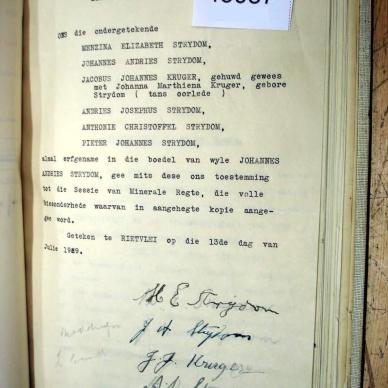 ONS die ondergetekende
MENZINA ELIZABETH STRYDOM,
JOHANNES ANDRIES STRYDOM,
JACOBUS JOHANNES KRUGER, gehuwd gewees
met Johanna Marthiena Kruger, gebore
Strydom ( tans oorlede )
ANDRIES JOSEPHUS STRYDOM,
ANTHONIE CHRISTOFFEL STRYDOM,
PIETER JOHANNES STRYDOM,
almal erfgename in die boedel van wyle JOHANNES
ANDRIES STRYDOM, gee mits dese ons toestemming
tot die Sessie van Minerale Regte, die volle
besonderhede waarvan in aangehegte kopie aange-
gee word.
Geteken te RIETVLEI op die 13de dag van
Julie 1939.
M E Strydom
J A Strydom
J. J. Kruger